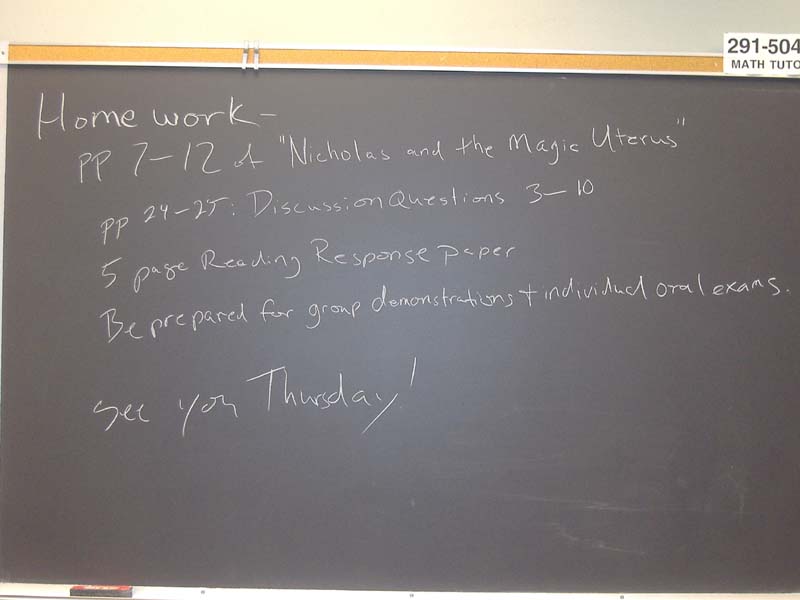 291-504
MATH TUTO
Homework-
pp 7-12 of "Nicholas and the Magic Uterus"
pp 24-25: Discussion Questions 3-10
5 page Reading Response paper
Be prepared for group demonstrations + individual oral exams.
See you Thursday!